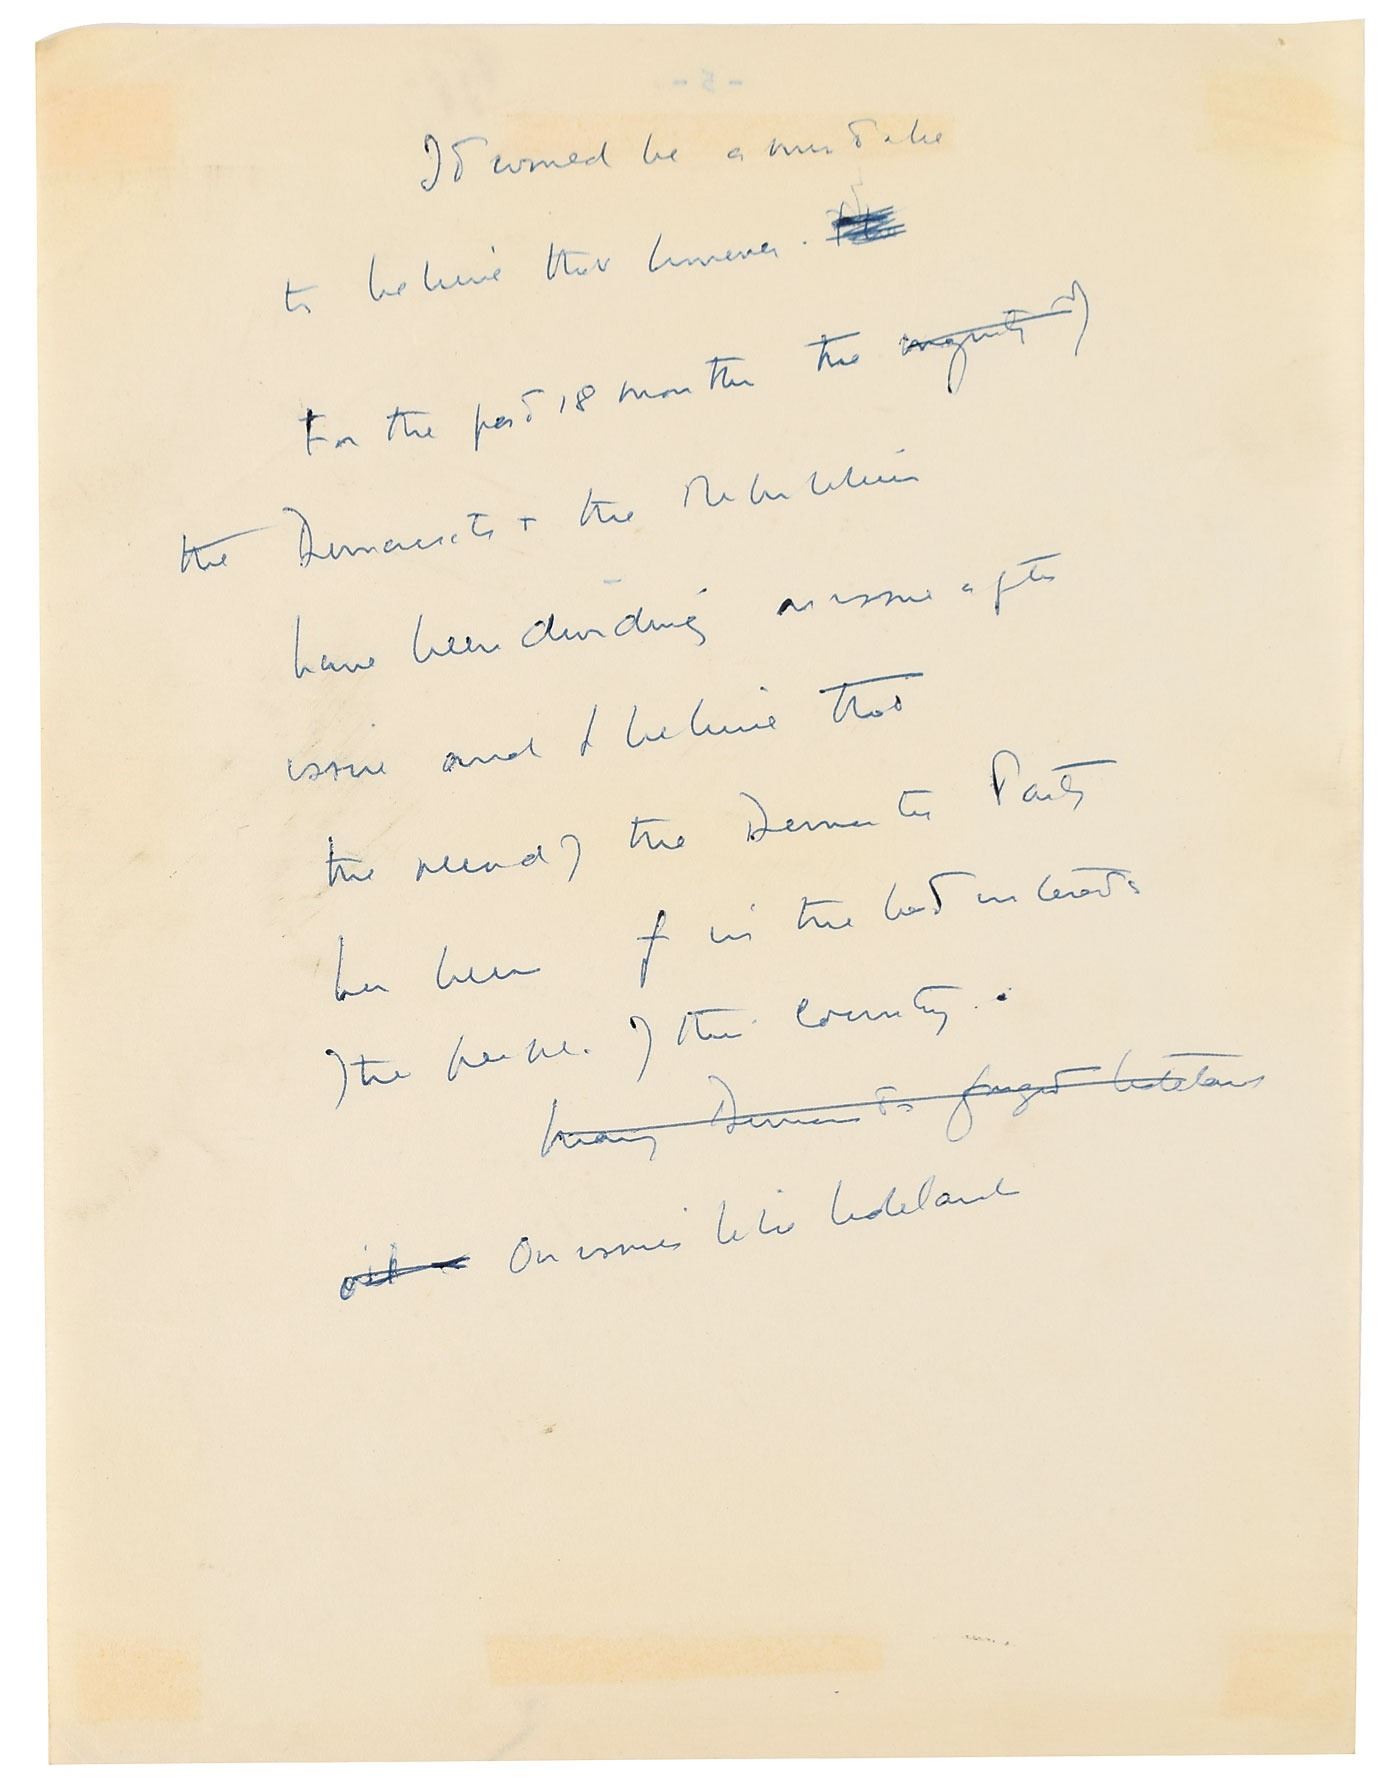 - 5 -
It would be a mistake
to believe that however.
For the past 18 months the majority of
the Democrats + the Republicans
have been dividing on issue after
issue and I believe that
the record of the Democratic Party
has been in the best interests
of the people of this country.
many Democrats fought tidelands
oil - On issues like tidelands